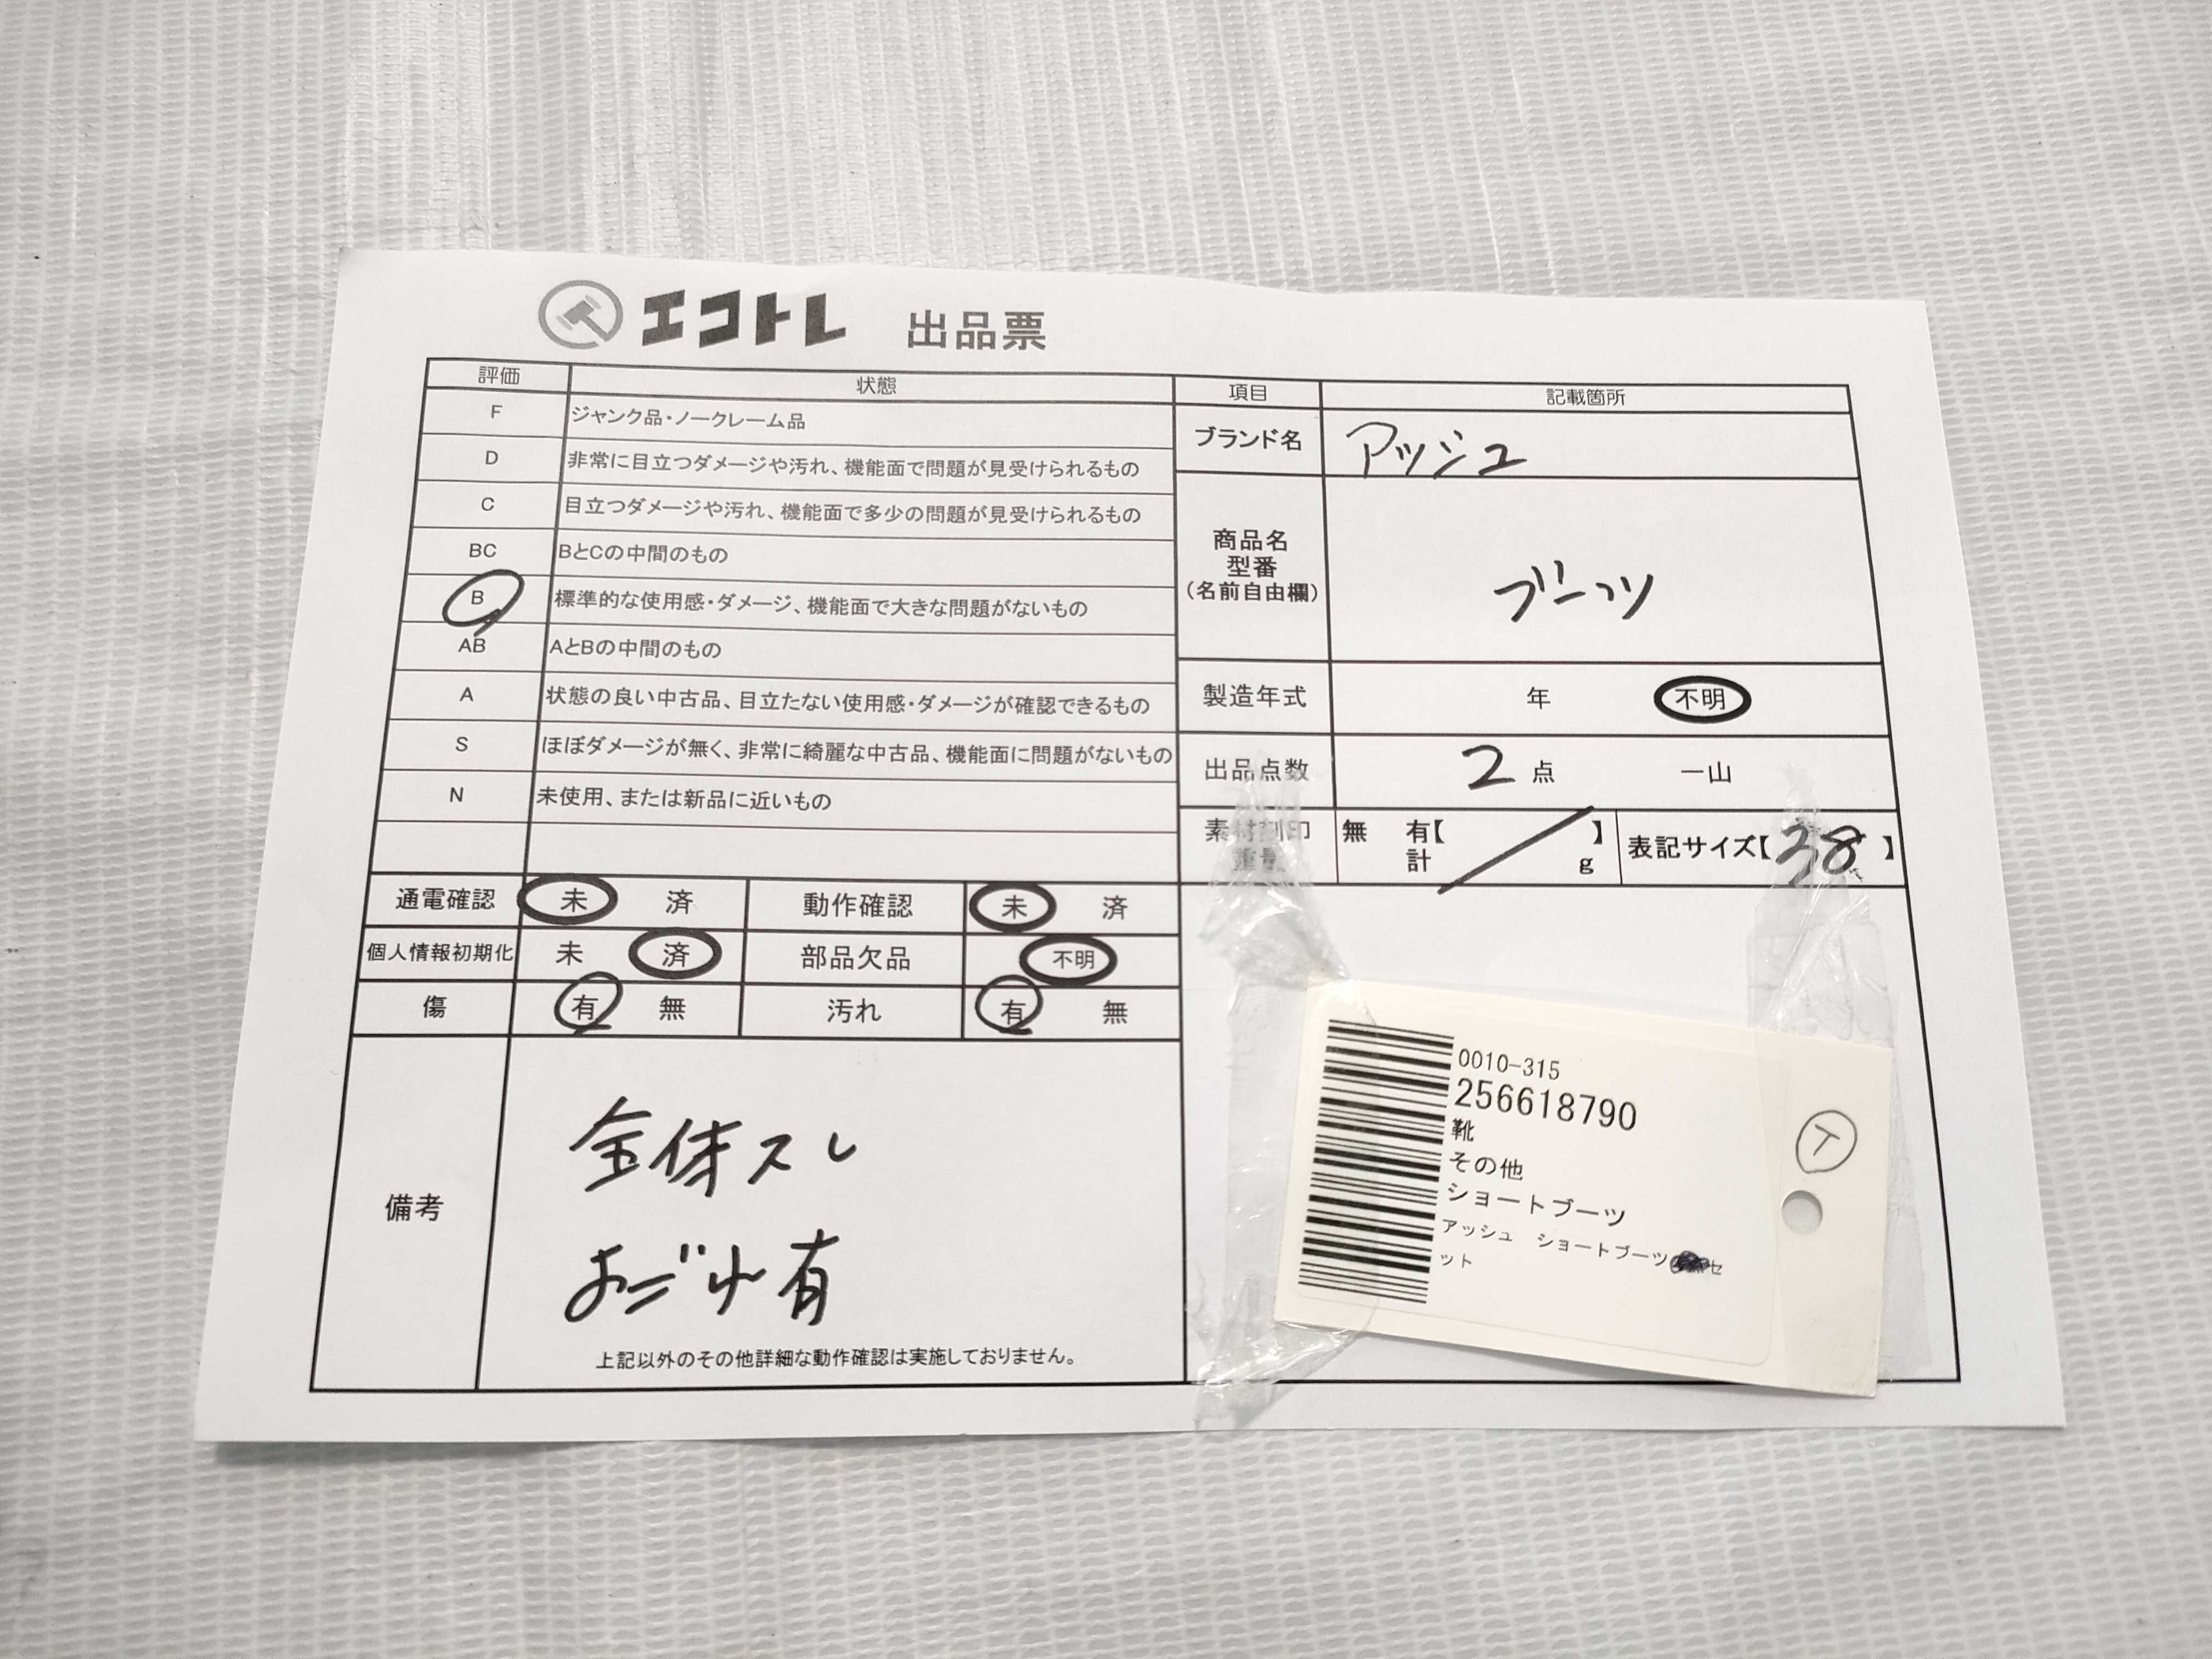 エコトレ 出品票
評価 状態
F ジャンク品・ノークレーム品
D 非常に目立つダメージや汚れ、機能面で問題が見受けられるもの
C 目立つダメージや汚れ、機能面で多少の問題が見受けられるもの
BC BとCの中間のもの
B 標準的な使用感・ダメージ、機能面で大きな問題がないもの
AB AとBの中間のもの
A 状態の良い中古品、目立たない使用感・ダメージが確認できるもの
S ほぼダメージが無く、非常に綺麗な中古品、機能面に問題がないもの
N 未使用、または新品に近いもの
項目 記載箇所
ブランド名 アッシュ
商品名
型番
(名前自由欄)
ブーツ
製造年式 年 不明
出品点数 2 点 一山
素材刻印 無 有【 】 表記サイズ【38】
重量 計 g
通電確認 未 済 動作確認 未 済
個人情報初期化 未 済 部品欠品 不明
傷 有 無 汚れ 有 無
備考
全体スレ
よごれ有
上記以外のその他詳細な動作確認は実施しておりません。
0010-315
256618790
靴
その他
ショートブーツ
アッシュ ショートブーツ セ
ット
T